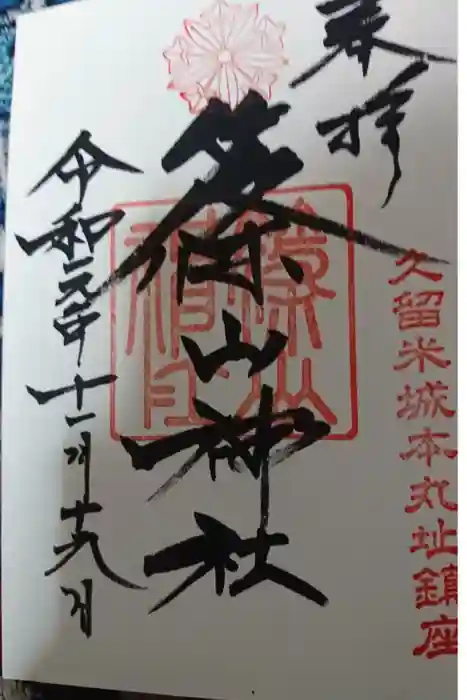 奉拝
久留米城本丸址鎮座
篠山神社
篠山神社
令和元年十一月十九日